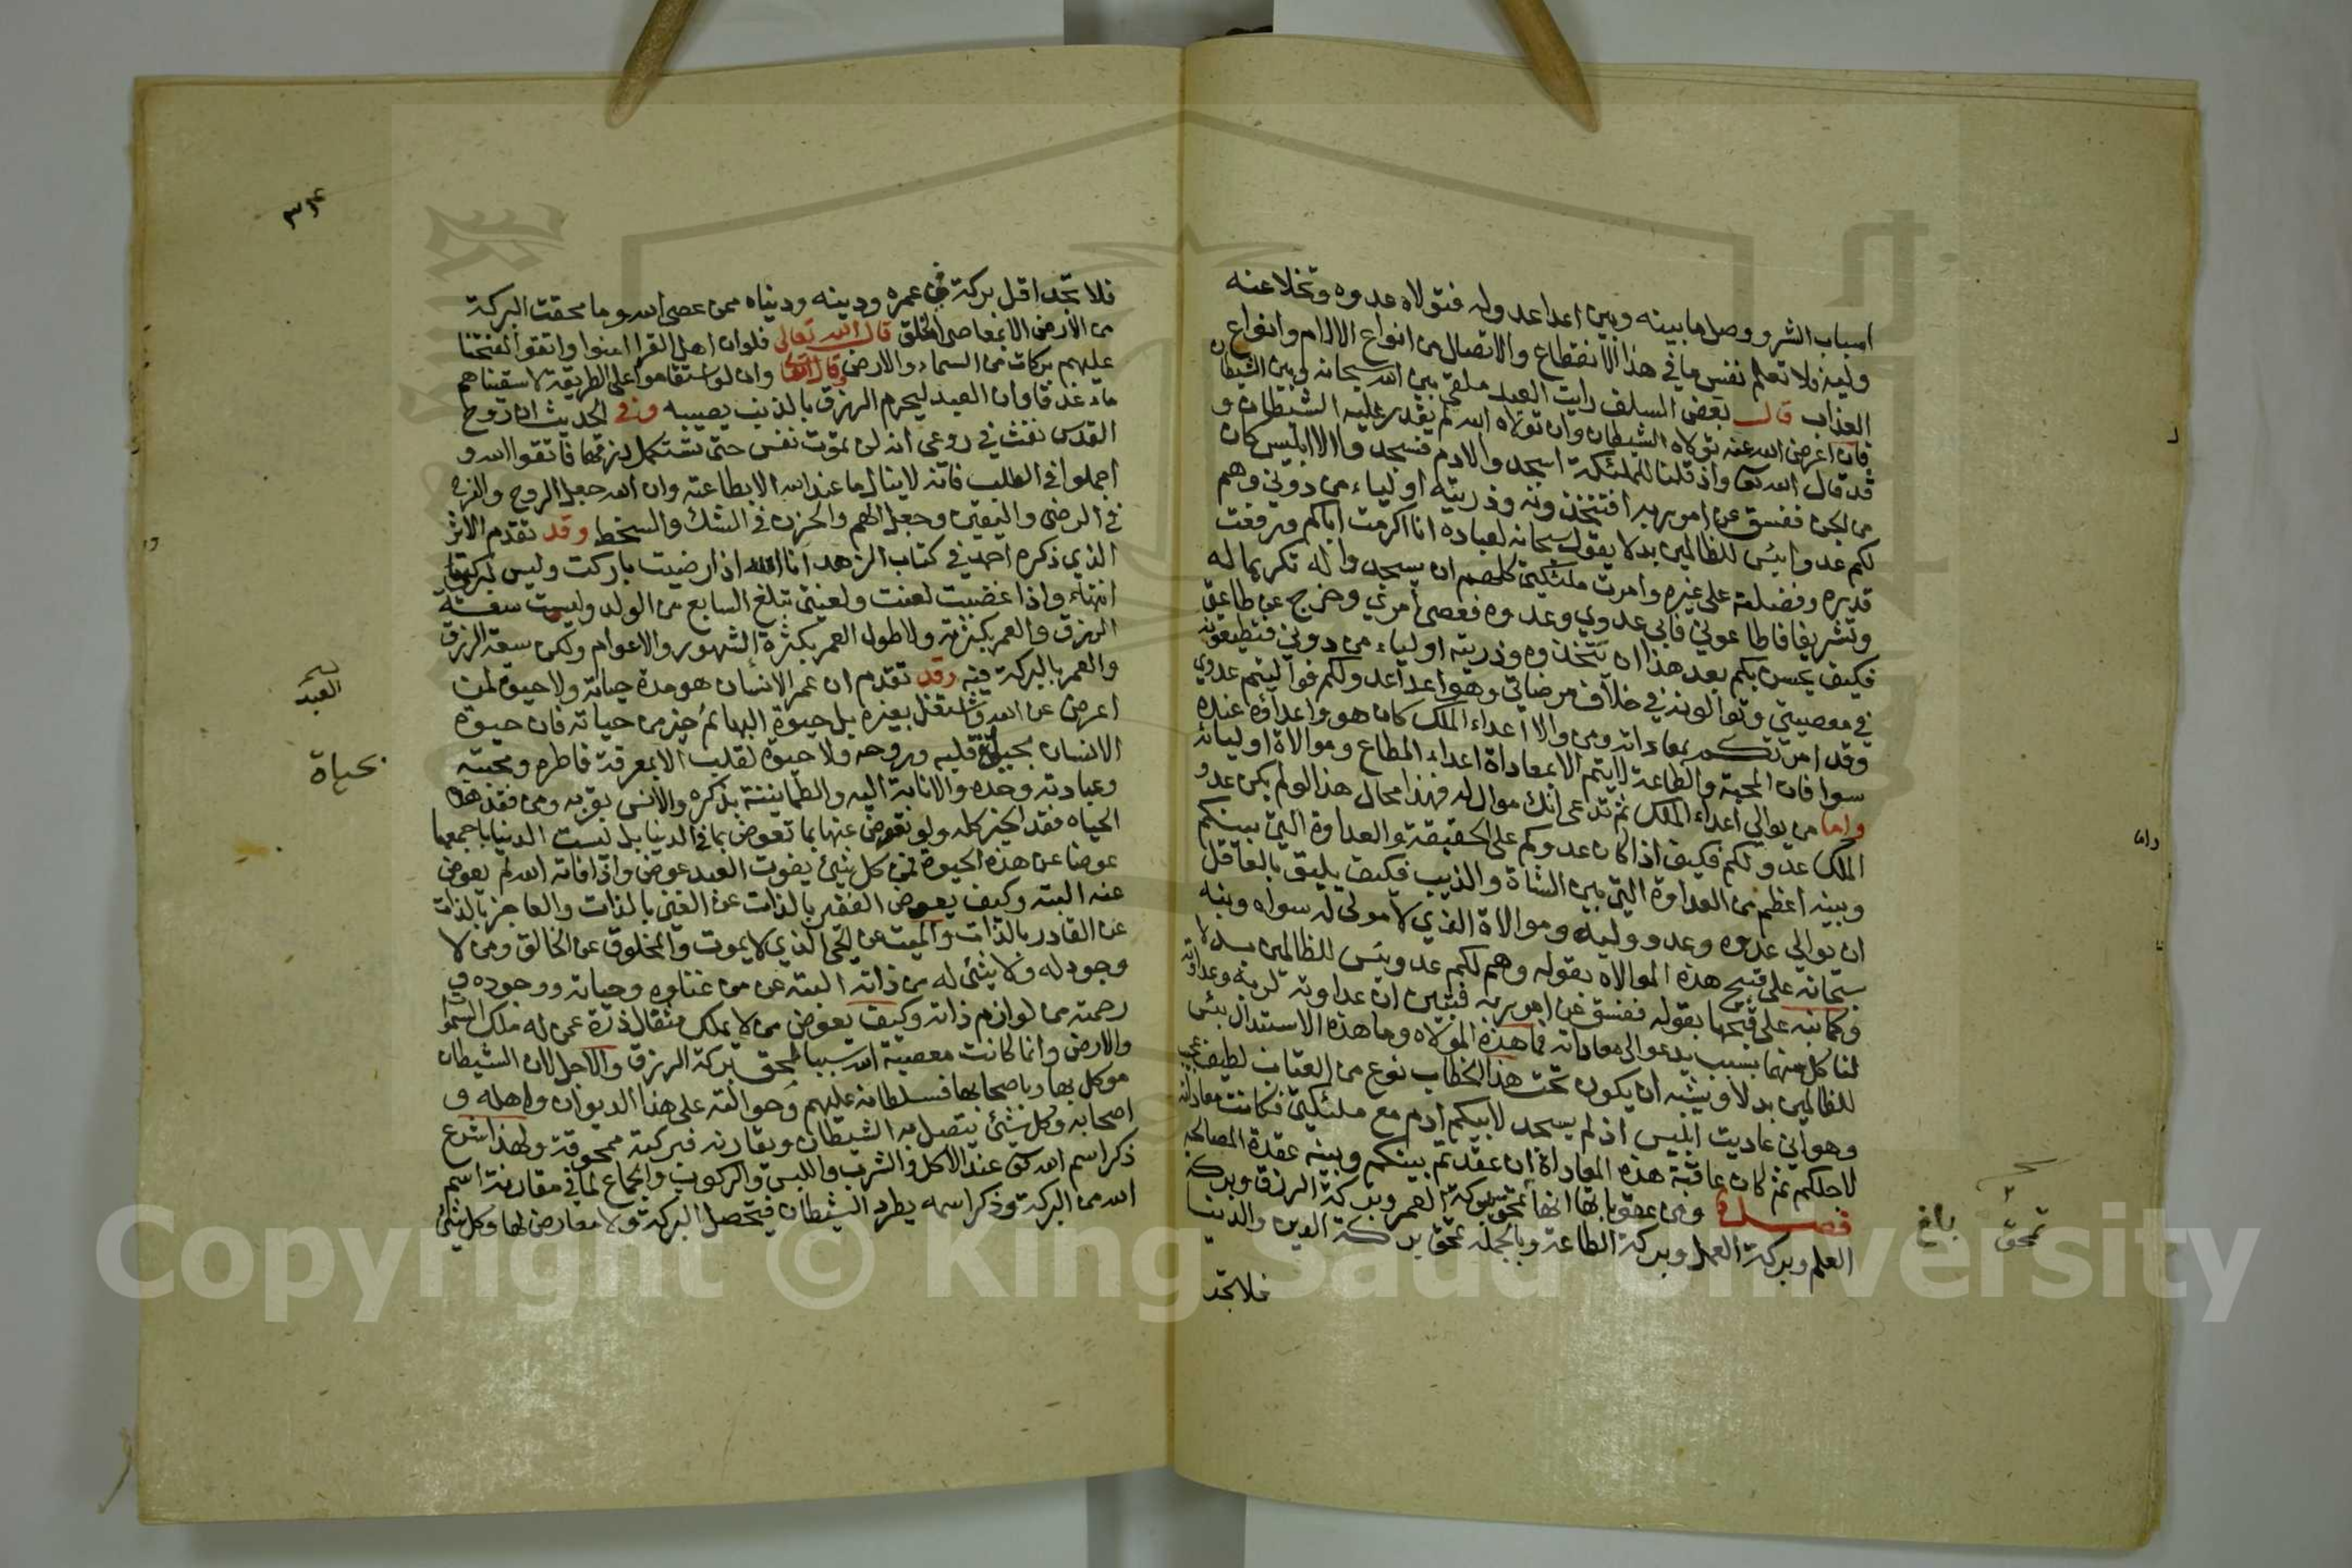 اسباب الشر ووصل ما بينه وبين اعدا عدو له فتولاه عدوه وتخلا عنه
وليه فلا تعلم نفس ما في هذا الانقطاع والاتصال من انواع الالام وانواع
العذاب قال بعض السلف رايت العبد ملقى بين الله سبحانه وبين الشيطان
فان اعرض الله عنه تولاه الشيطان وان تولاه الله لم يقدر عليه الشيطان و
قد قال الله تعالى واذ قلنا للملئكة اسجدوا لادم فسجدوا الا ابليس كان
من الجن ففسق عن امر ربه افتتخذونه وذريته اولياء من دوني وهم
لكم عدو بئس للظالمين بدلا يقول سبحانه لعباده انا اكرمت اباكم ورفعت
قدره وفضلته على غيره وامرت ملئكتي كلهم ان يسجدوا له تكريما له
وتشريفا فاطاعوني فابى عدوي وعدوه فعصى امري وخرج عن طاعتي
فكيف يحسن بكم بعد هذا ان تتخذوه وذريته اولياء من دوني فتطيعونه
في معصيتي وتوالونه في خلاف مرضاتي وهو اعدا عدو لكم فواليتم عدوي
وقد امرتكم بمعاداته ومن والا اعداء الملك كان هو واعداؤه عنده
سوا فان المحبة والطاعة لا يتم الا بمعاداة اعداء المطاع وموالاة اوليائه
واما من يوالي اعداء الملك ثم تدعى انك موال له فهذا محال هذا لو لم يكن عدو
الملك عدو لكم فكيف اذا كان عدوكم على الحقيقة والعداوة التي بينكم
وبينه اعظم من العداوة التي بين الشاة والذيب فكيف يليق بالعاقل
ان يوالي عدوه وعدو وليه وموالاة الذي لا مولى له سواه ونبه
سبحانه على قبح هذه الموالاه بقوله وهم لكم عدو بئس للظالمين بدلا
وكما نبه على قبحها بقوله ففسق عن امر ربه فتبين ان عداوته لربه وعداوته
لنا كل منهما سبب يدعو الى معاداته فما هذه المولاه وما هذه الاستبدال بئس
للظالمين بدلا ويشبه ان يكون تحت هذا الخطاب نوع من العتاب لطيف عجيب
وهو اني عاديت ابليس اذ لم يسجد لابيكم ادم مع ملئكتي فكانت معاداته
لاجلكم ثم كان عاقبة هذه المعاداة ان عقدتم بينكم وبينه عقدة المصالحه
فصل ومن عقوباتها انها تمحق بركة العمر وبركة الرزق وبركة
العلم وبركة العمل وبركة الطاعة وبالجملة تمحق بركة الدين والدينا
فلا تجد
واما
تمحق
بلغ
٣٣٤
فلا تجد اقل بركة في عمره ودينه ودنياه ممن عصى الله وما محقت البركة
من الارض الا بمعاصي الخلق قال الله تعالى فلو ان اهل القرا امنوا واتقوا لفتحنا
عليهم بركات من السماء والارض وقال تعالى وان لو استقاموا على الطريقة لاسقيناهم
ماء غدقا وان العبد ليحرم الرزق بالذنب يصيبه وفي الحديث ان روح
القدس نفث في روعي انه لن تموت نفس حتى تستكمل رزقها فاتقوا الله و
اجملوا في الطلب فانه لا ينال ما عند الله الا بطاعته وان الله جعل الروح والفرح
في الرضى واليقين وجعل الهم والحزن في الشك والسخط وقد تقدم الاثر
الذي ذكره احمد في كتاب الزهد انا الله اذا رضيت باركت وليس لبركتي
انتهاء واذا غضبت لعنت ولعنتي تبلغ السابع من الولد وليست سعة
الرزق والعمر بكثرته ولا طول العمر بكثرة الشهور والاعوام ولكن سعة الرزق
والعمر بالبركة فيه وقد تقدم ان عمر الانسان هو مدة حياته ولا حيوة لمن
اعرض عن الله واشتغل بغيره بل حيوة البهائم خير من حياته فان حيوة
الانسان بحياة قلبه وروحه ولا حيوة لقلب الا بمعرفة فاطره ومحبته
وعبادته وحده والانابة اليه والطمانينة بذكره والانس بقربه ومن فقد هذه
الحياه فقد الخير كله ولو تعوض عنها بما تعوض بما في الدينا بل ليست الدينا باجمعها
عوضا عن هذه الحيوة فمن كل شئ يفوت العبد عوض واذا فاته الله لم يعوض
عنه البته وكيف يعوض الفقير بالذات عن الغني بالذات والعاجز بالذات
عن القادر بالذات والميت عن الحي الذي لا يموت والمخلوق عن الخالق ومن لا
وجود له ولا شئ له من ذاته البته عن من غناؤه وحياته ووجوده و
رحمته من لوازم ذاته وكيف يعوض من لا يملك مثقال ذرة عمن له ملك السموات
والارض وانما كانت معصية الله سببا لمحق بركة الرزق والاجل لان الشيطان
موكل بها وباصحابها فسلطانه عليهم وحوالته على هذا الديوان واهله و
اصحابه وكل شئ يتصل به الشيطان ويقارنه فبركته ممحوقة ولهذا شرع
ذكر اسم الله تعالى عند الاكل والشرب واللبس والركوب والجماع لما في مقارنة اسم
الله من البركة وذكر اسمه يطرد الشيطان فيحصل البركة ولا معارض لها وكل شئ
العبد
بحياة